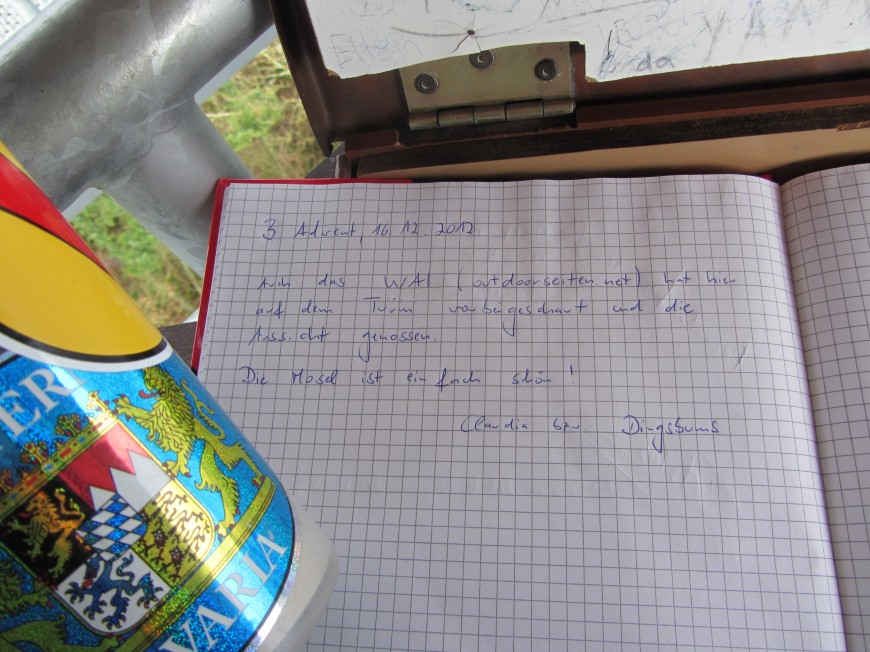 Ellen
da
3 Advent, 16.12.2012
Auch das WAI (outdoorseiten.net) hat hier
auf dem Turm vorbeigeschaut und die
Aussicht genossen.
Die Mosel ist einfach schön!
Claudia bzw. Dingsbums
ERN
VARIA